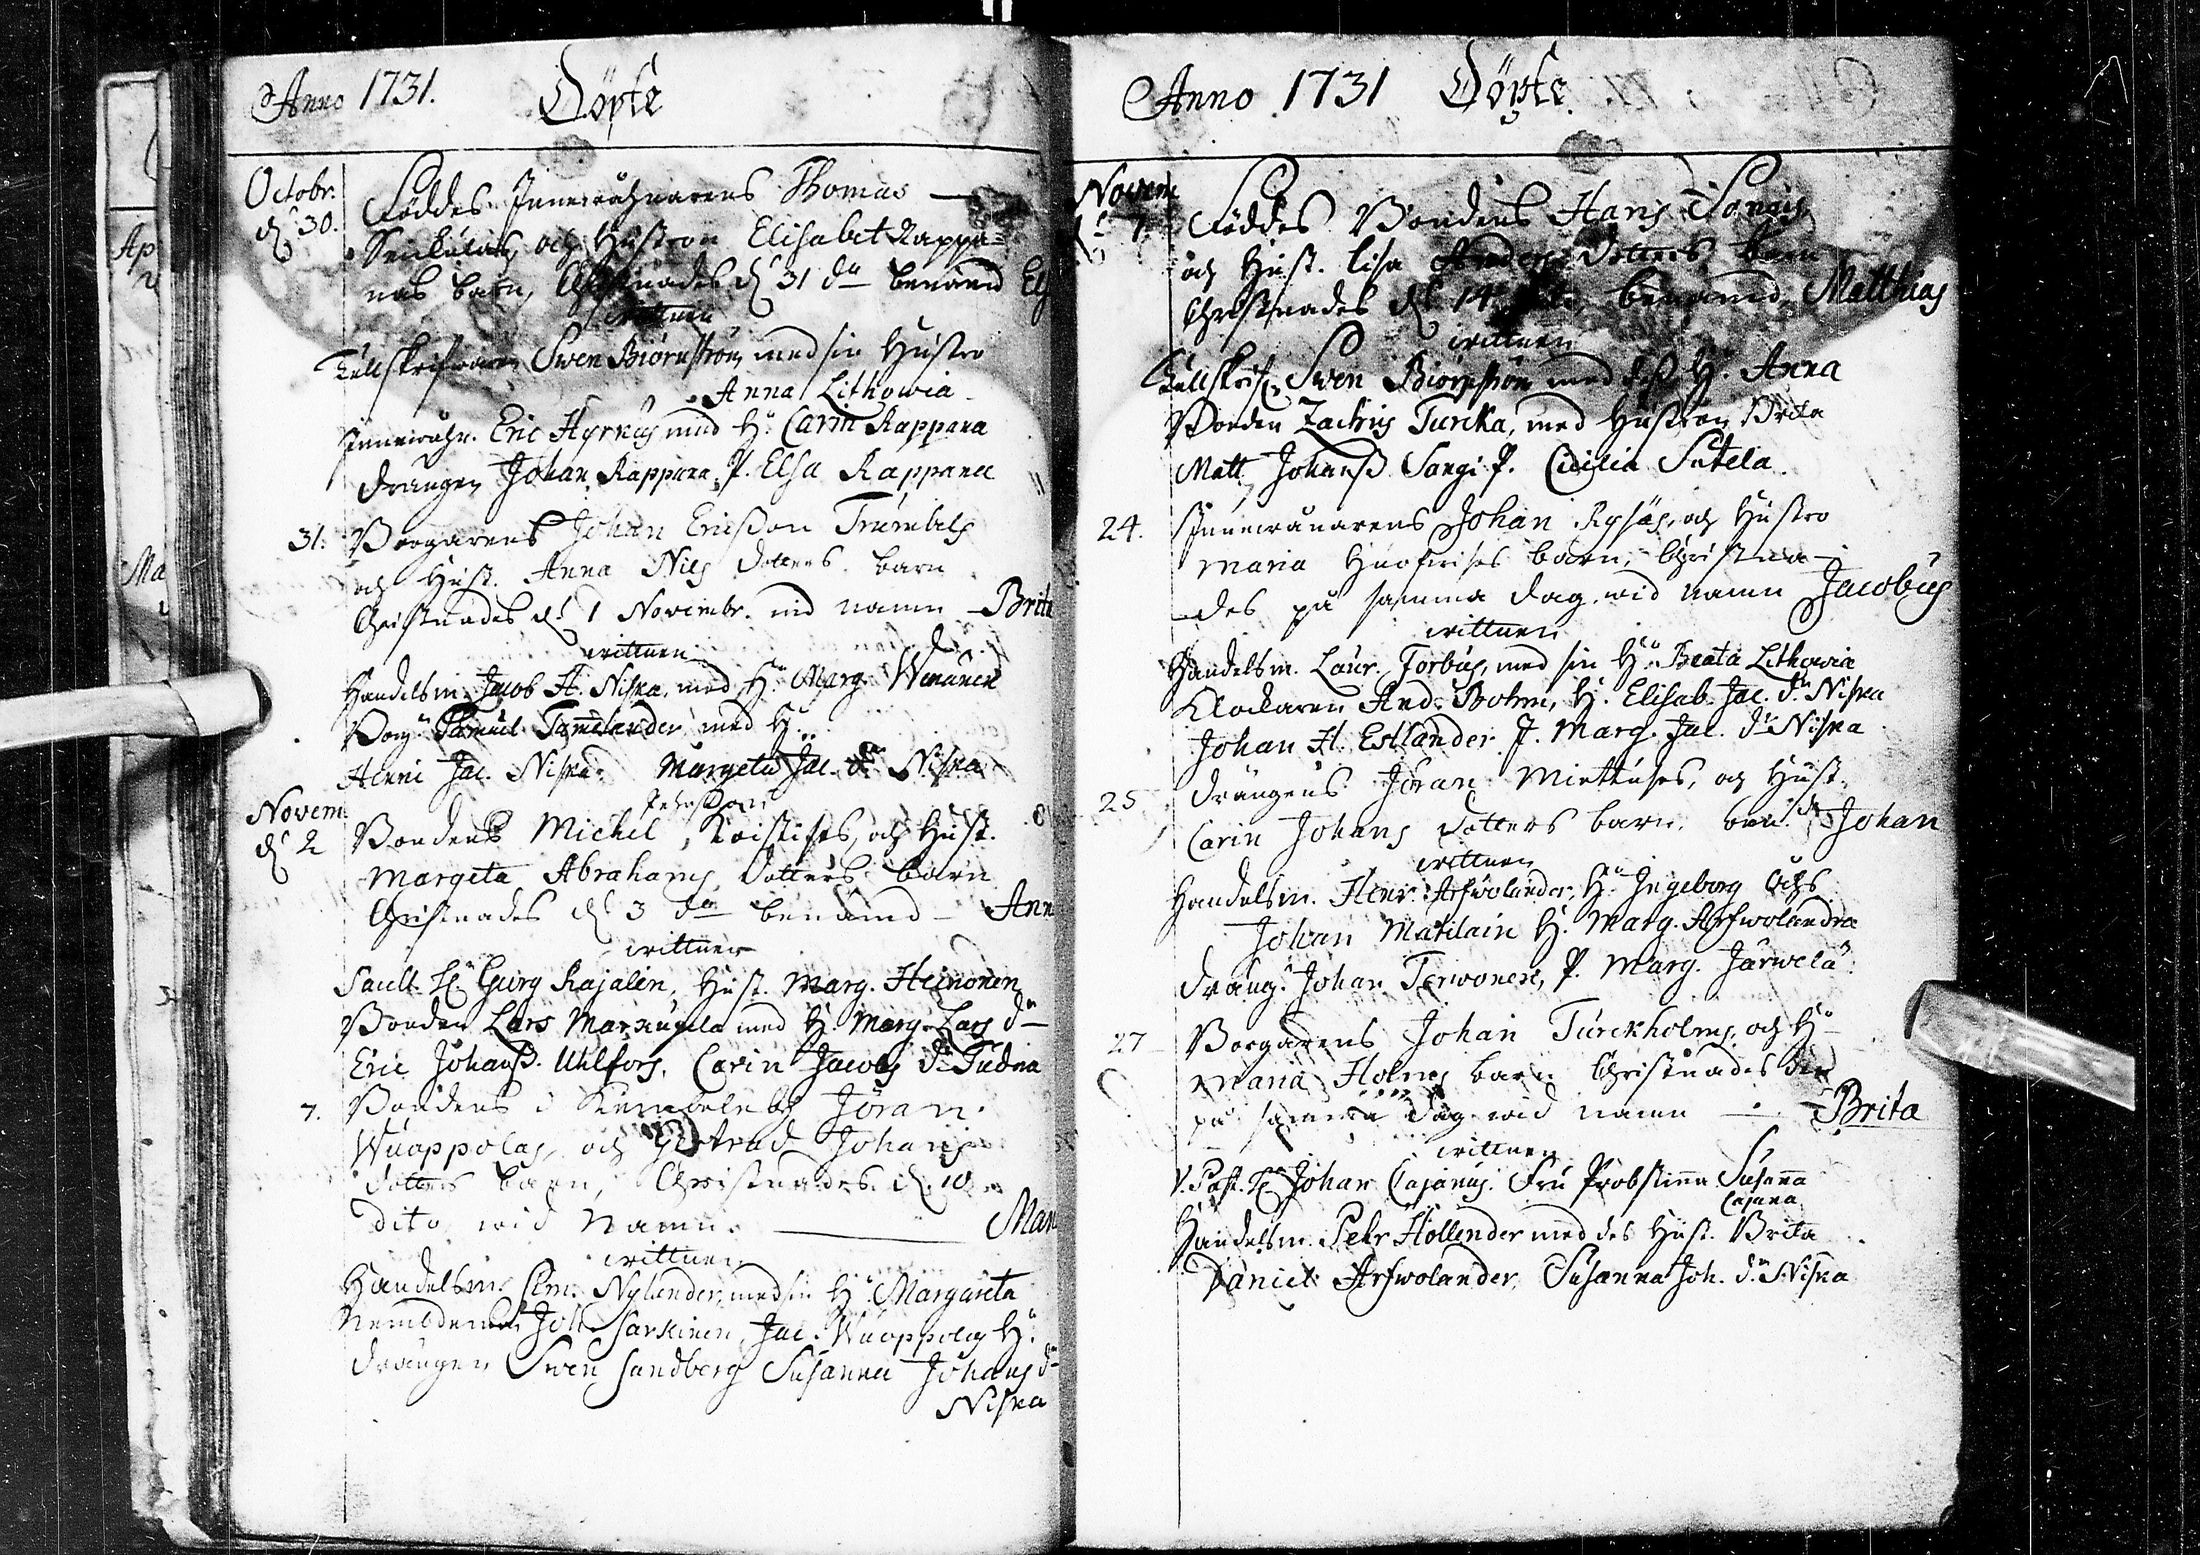 Anno 1731. Döpte
Octobr. d. 30. Föddes Innewåhnarens Thomas
och Hustron Elisabet Rappa=
nas barn, Christnades d. 31 do benämd
wittnen
Tullskrifwaren Swen Biörnström med sin Hustro
Anna Lithowia
Innewåhn. Eric Hyrkäs med H. Carin Rappana
Drängen Johan Rappana, P. Elsa Rappana
31. Borgarens Johan Ericsson Trumbels
och Hust. Anna Nils dotters barn
Christnades d. 1 Novembr. wid namn Brita
wittnen
Handelsm. Jacob H. Niska, med H. Marg.
Borg. Samuel Tamelander med H.
Henric Jac. Niska. Margeta Jac. dr Niska
Novem. d. 2 Bondens Michel Koistis, och Hust.
Margeta Abrahams dotters barn
Christnades d. 3 do benämd Ann
wittner
Georg Rajalin, Hust. Marg. Heinonen
Bonden Lars med H. Marg. Lars dr
Eric Johanss. Uhlfors. Carin Jacobs dr
7. Bondens i Kembeleby Jöran
Wuoppolas, och Gertrud Johans
dotters barn, Christnades d. 10
dito wid Namn Mar
wittnen
Handelsm. Clem. Nylander, med sin H. Margareta
Joh. Sarkinen, Jac. Wuoppolas H.
Drängen Swen Sandberg Susanna Johans dr
Niska
Anno 1731 Döpte.
Novem. d. 7 Föddes Bondens Hans
och Hust. Lisa Anders dotters barn
Christnades d. 14 benämd Matthias
wittnen
Tullskrif. Swen Biörnström med dess H. Anna
Bonden Zachris Turcka, med Hustron Brita
Matt Johanss Sangi. P. Cicilia Sutela
24. Innewånarens Johan och Hustro
Maria barn, Christna-
des på samma dag wid namn Jacobus
wittnen
Handelsm. Laur. Forbus, med sin H. Beata Lithowia
Klockaren And. Bohm, H. Elisab. Jac. dr Niska
Johan H. Estlander P. Marg. Jac. dr Niska
25 Drängens Jöran Miettuses, och Hust.
Carin Johans dotters barn ben.d Johan
wittnen
Handelsm. Henr. Arfwolander, H. Ingeborg
Johan Matilain H. Marg. Arfwolandra
Dräng. Johan Terwonen, P. Marg. Järwelä
27 Borgarens Johan Turckholms, och H.
Maria Holms barn Christnades
på samma dag wid namn Brita
wittnen
V. Past. H. Johan Cajanus. Fru Probstinna Susanna
Cajana
Handelsm. Pehr Hollender med des Hust. Brita
Daniel Arfwolander, Susanna Joh. dr Niska